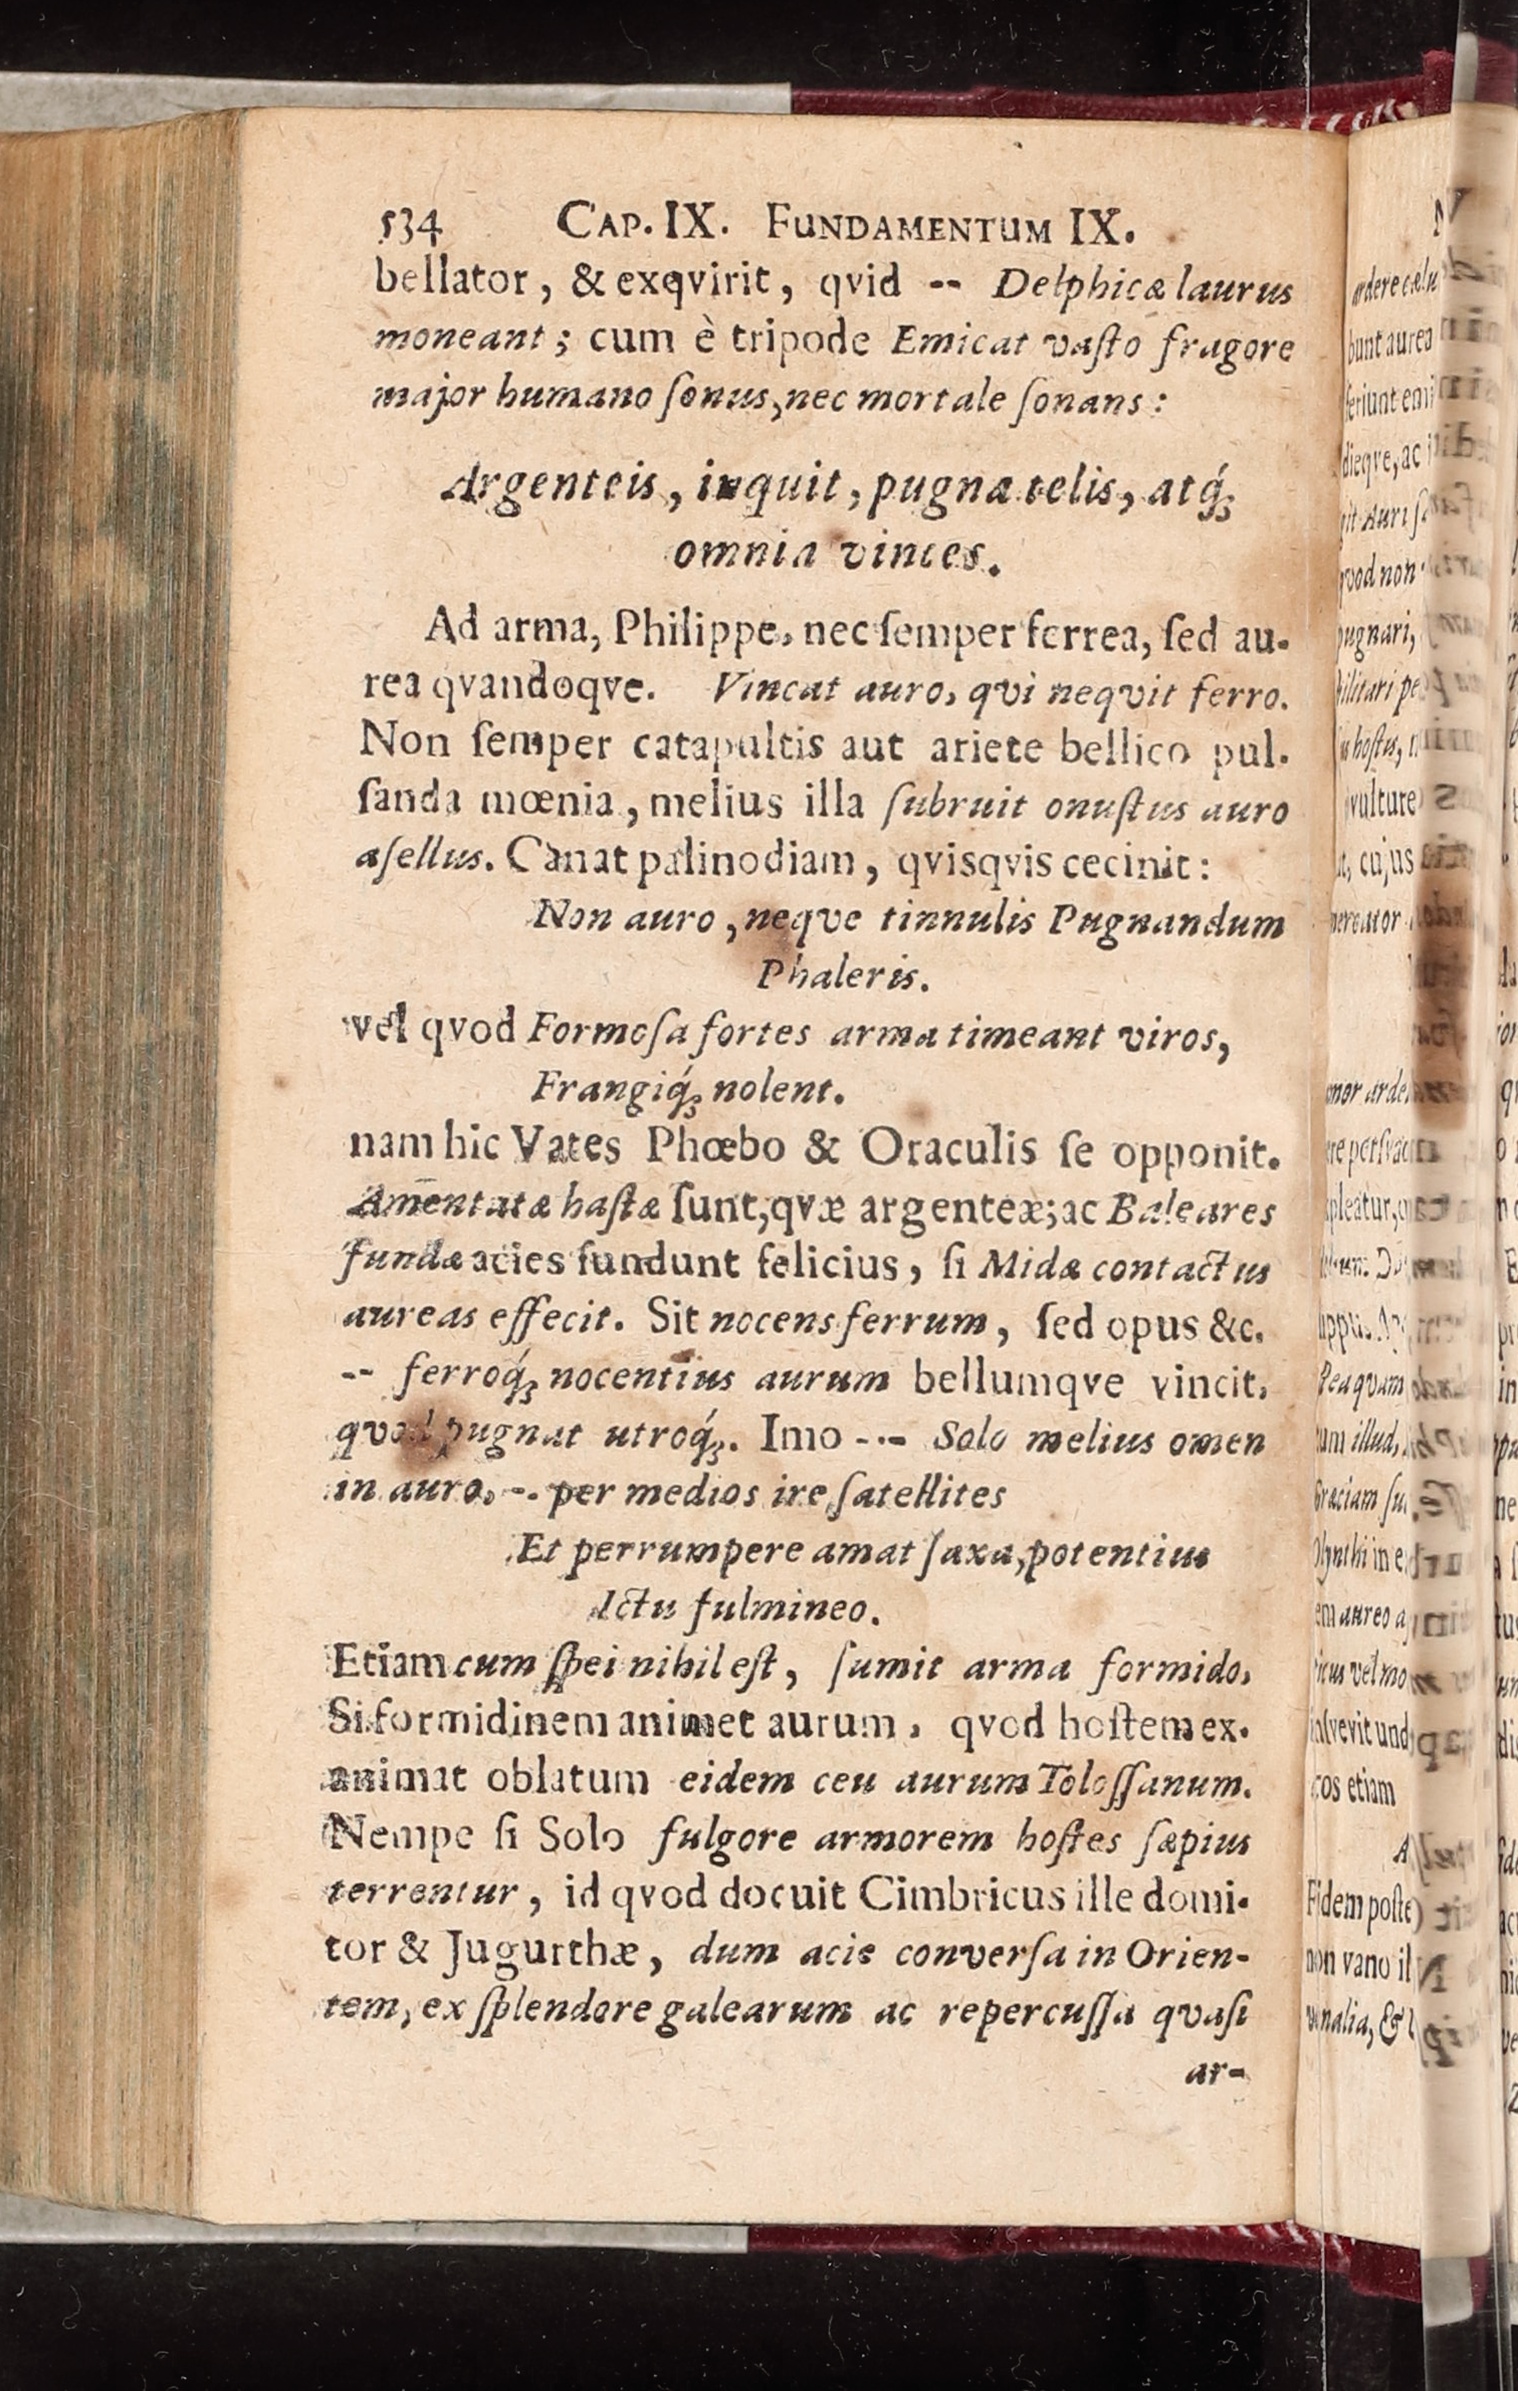 534 CAP. IX. FUNDAMENTUM IX.
bellator, & exqvirit, qvid -- Delphicæ laurus
moneant; cum è tripode Emicat vaſto fragore
major humano ſonus, nec mortale ſonans:
Argenteis, inquit, pugnæ telis, atq́;
omnia vinces.
Ad arma, Philippe, nec ſemper ferrea, ſed au-
rea qvandoqve. Vincat auro, qvi neqvit ferro.
Non ſemper catapultis aut ariete bellico pul-
ſanda mœnia, melius illa ſubruit onuſtus auro
aſellus. Canat palinodiam, qvisqvis cecinit:
Non auro, neqve tinnulis Pugnandum
Phaleris.
vel qvod Formoſa fortes arma timeant viros,
Frangiq́; nolent.
nam hic Vates Phœbo & Oraculis ſe opponit.
Amentatæ haſtæ ſunt, qvæ argenteæ; ac Baleares
fundæ acies fundunt felicius, ſi Midæ contactus
aureas effecit. Sit nocens ferrum, ſed opus &c.
-- ferroq́; nocentius aurum bellumqve vincit,
qvod pugnat utroq́;. Imo --- Solo melius omen
in auro, -- per medios ire ſatellites
Et perrumpere amat ſaxa, potentius
Ictu fulmineo.
Etiam cum ſpei nihil eſt, ſumit arma formido,
Si formidinem animet aurum, qvod hoſtem ex-
animat oblatum eidem ceu aurum Toloſſanum.
Nempe ſi Solo fulgore armorem hoſtes ſæpius
terrentur, id qvod docuit Cimbricus ille domi-
tor & Jugurthæ, dum acie converſa in Orien-
tem, ex ſplendore galearum ac repercuſſa qvaſi
ar-